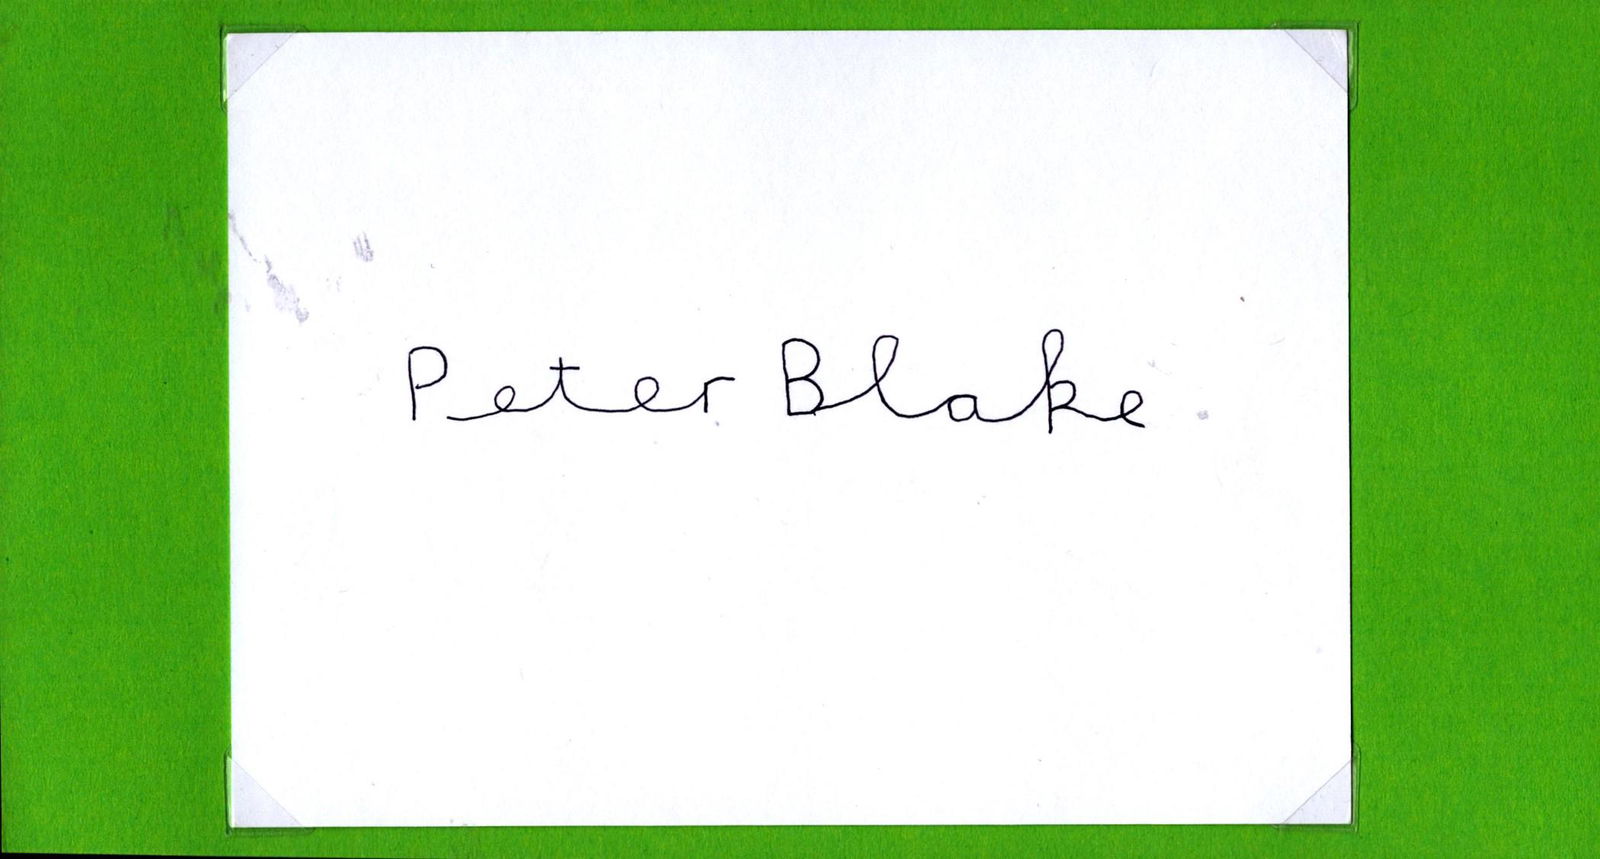 Peter Blake.